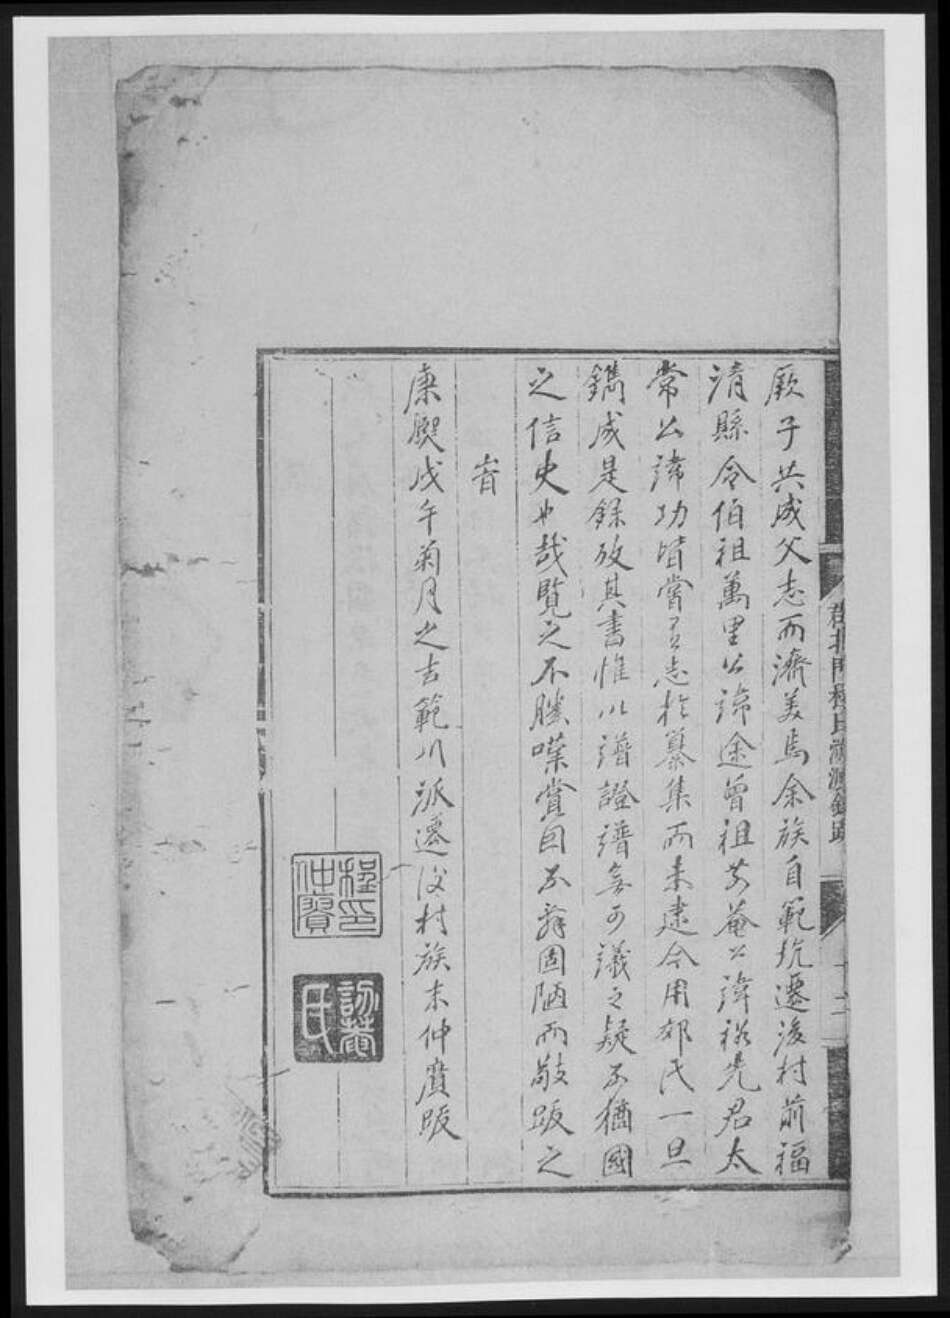 厥子共成父志而濟美焉余族自範坑遷後村前福
清縣令伯祖萬里公諱途曾祖共菴公諱裕先君太
常公諱功皆嘗有志於纂集而未逮今用郊氏一旦
鐫成是錄攷其書惟以譜證譜無可議之疑不猶國
之信史也哉覽之不勝嘆賞因不辭固陋而敬跋之
旹
康熙戊午菊月之吉範川派遷後村族末仲賓跋
程印仲賓
詠菴氏
北門程氏淵源錄跋
十二